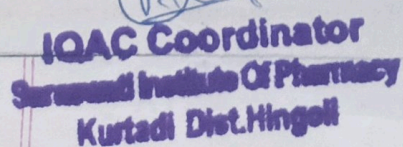 IQAC Coordinator
Saraswati Institute Of Pharmacy
Kurtadi Dist.Hingoli